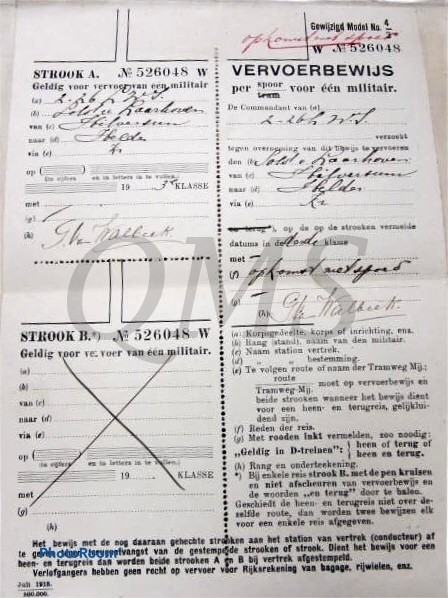 Gewijzigd Model No. 4
opkomst met spoed
W № 526048
STROOK A. № 526048 W
Geldig voor vervoer van één militair
(a) 2-26 h
(b) Sold. v Raarhoven
van (c) Hilversum
naar (d) Helder
via (e)
op
(In cijfers en in letters in te vullen.)
19 3de KLASSE
met
(g)
(h) G. v. Walbeek.
VERVOERBEWIJS
per spoor tram voor één militair.
De Commandant van (a)
2-26 h
verzoekt
tegen overneming van dit bewijs te vervoeren
den (b) Sold. v Raarhoven
van (c) Hilversum
naar (d) Helder
via (e)
en terug), op de op de strooken vermelde
datums in de 3de klasse
met
(f) opkomst met spoed
(g)
(h) G. v. Walbeek.
STROOK B.*) № 526048 W
Geldig voor vervoer van één militair.
(a)
(b)
van (c)
naar (d)
via (e)
op
(In cijfers en in letters in te vullen.)
19 KLASSE
met
(g)
(h)
(a) Korpsgedeelte, korps of inrichting, enz.
(b) Rang (stand), naam van den militair.
(c) Naam station vertrek.
(d) „ „ bestemming.
(e) Te volgen route of naam der Tramweg Mij.;
route moet op vervoerbewijs en
Tramweg-Mij.
beide strooken wanneer het bewijs dient
voor een heen- en terugreis, gelijkluidend
zijn.
(f) Reden der reis.
(g) Met rooden inkt vermelden, zoo noodig:
„Geldig in D-treinen": heen of terug of
heen en terug.
(h) Rang en onderteekening.
*) Bij enkele reis strook B. met de pen kruisen
en niet afscheuren van vervoerbewijs en
de woorden „en terug" door te halen.
Geschiedt de heen- en terugreis niet over dezelfde
route, dan worden twee bewijzen elk
voor een enkele reis afgegeven.
Het bewijs met de nog daaraan gehechte strooken aan het station van vertrek (conducteur) af
te geven ontvangst van de gestempelde strooken of strook. Dient het bewijs voor een
heen- en terugreis dan worden beide strooken A en B bij vertrek afgestempeld.
Verlofgangers hebben geen recht op vervoer voor Rijksrekening van bagage, rijwielen, enz.
Juli 1918.
500.000.
QMS
PhotoRoom